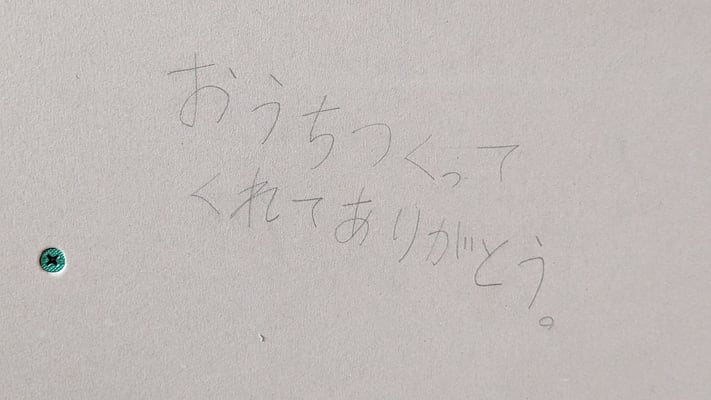 おうちつくって
くれてありがとう。